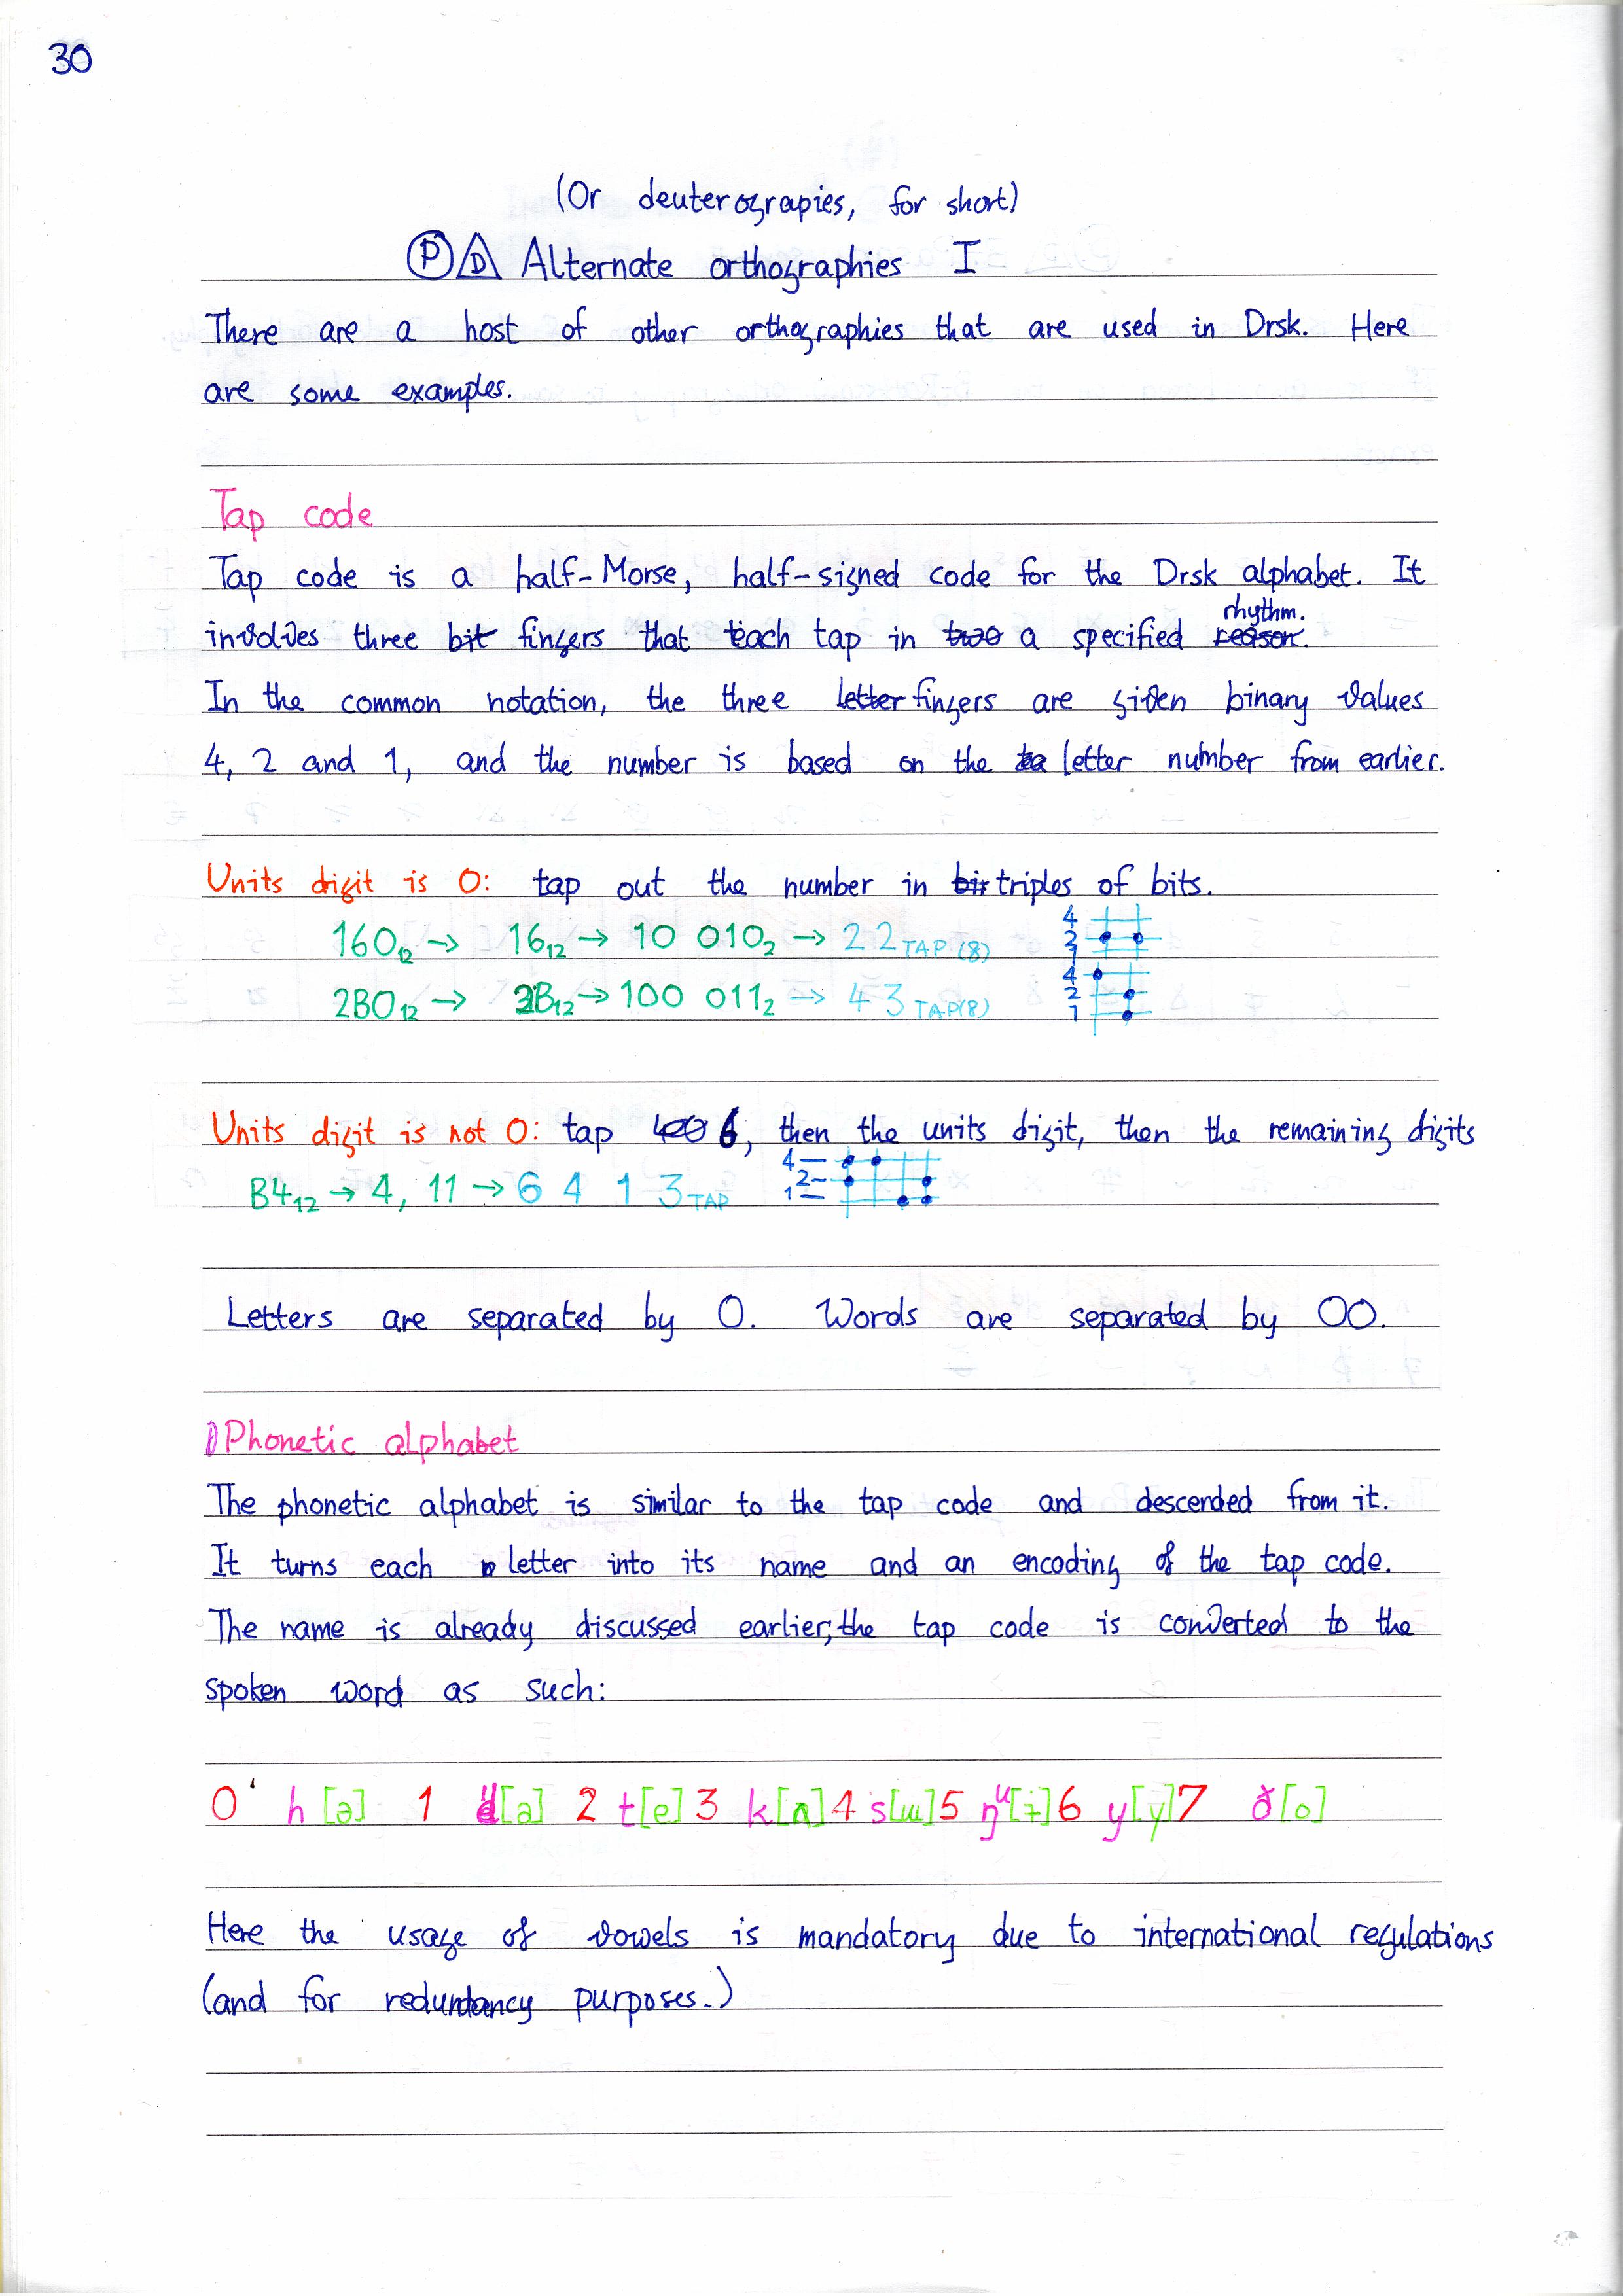 30
(Or deuterograpies, for short)
Ⓟ D Alternate orthographies I
There are a host of other orthographies that are used in Drsk. Here
are some examples.
Tap code
Tap code is a half-Morse, half-signed code for the Drsk alphabet. It
rhythm.
involves three bit fingers that each tap in two a specified reason.
In the common notation, the three letter fingers are given binary values
4, 2 and 1, and the number is based on the ta letter number from earlier.
Units digit is 0: tap out the number in bit triples of bits.
160₁₂ → 16₁₂ → 10 010₂ → 2 2 TAP (8) 4 2 1
2B0₁₂ → 2B₁₂ → 100 011₂ → 4 3 TAP(8) 4 2 1
Units digit is not 0: tap 400 6, then the units digit, then the remaining digits
B4₁₂ → 4, 11 → 6 4 1 3 TAP 4 2 1
Letters are separated by 0. Words are separated by 00.
Phonetic alphabet
The phonetic alphabet is similar to the tap code and descended from it.
It turns each letter into its name and an encoding of the tap code.
The name is already discussed earlier; the tap code is converted to the
spoken word as such:
0 h [ə] 1 d[a] 2 t[e] 3 k[ʌ] 4 s[ɯ] 5 ŋᵘ[ɨ] 6 y[y] 7 ð[o]
Here the usage of vowels is mandatory due to international regulations
(and for redundancy purposes.)